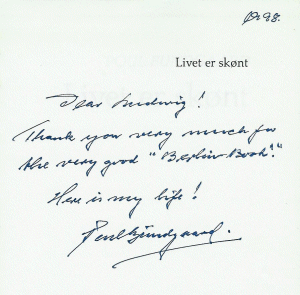 98.
Livet er skønt
Dear Ludwig!
Thank you very much for
the very good "Berlin Book".
Here is my life!